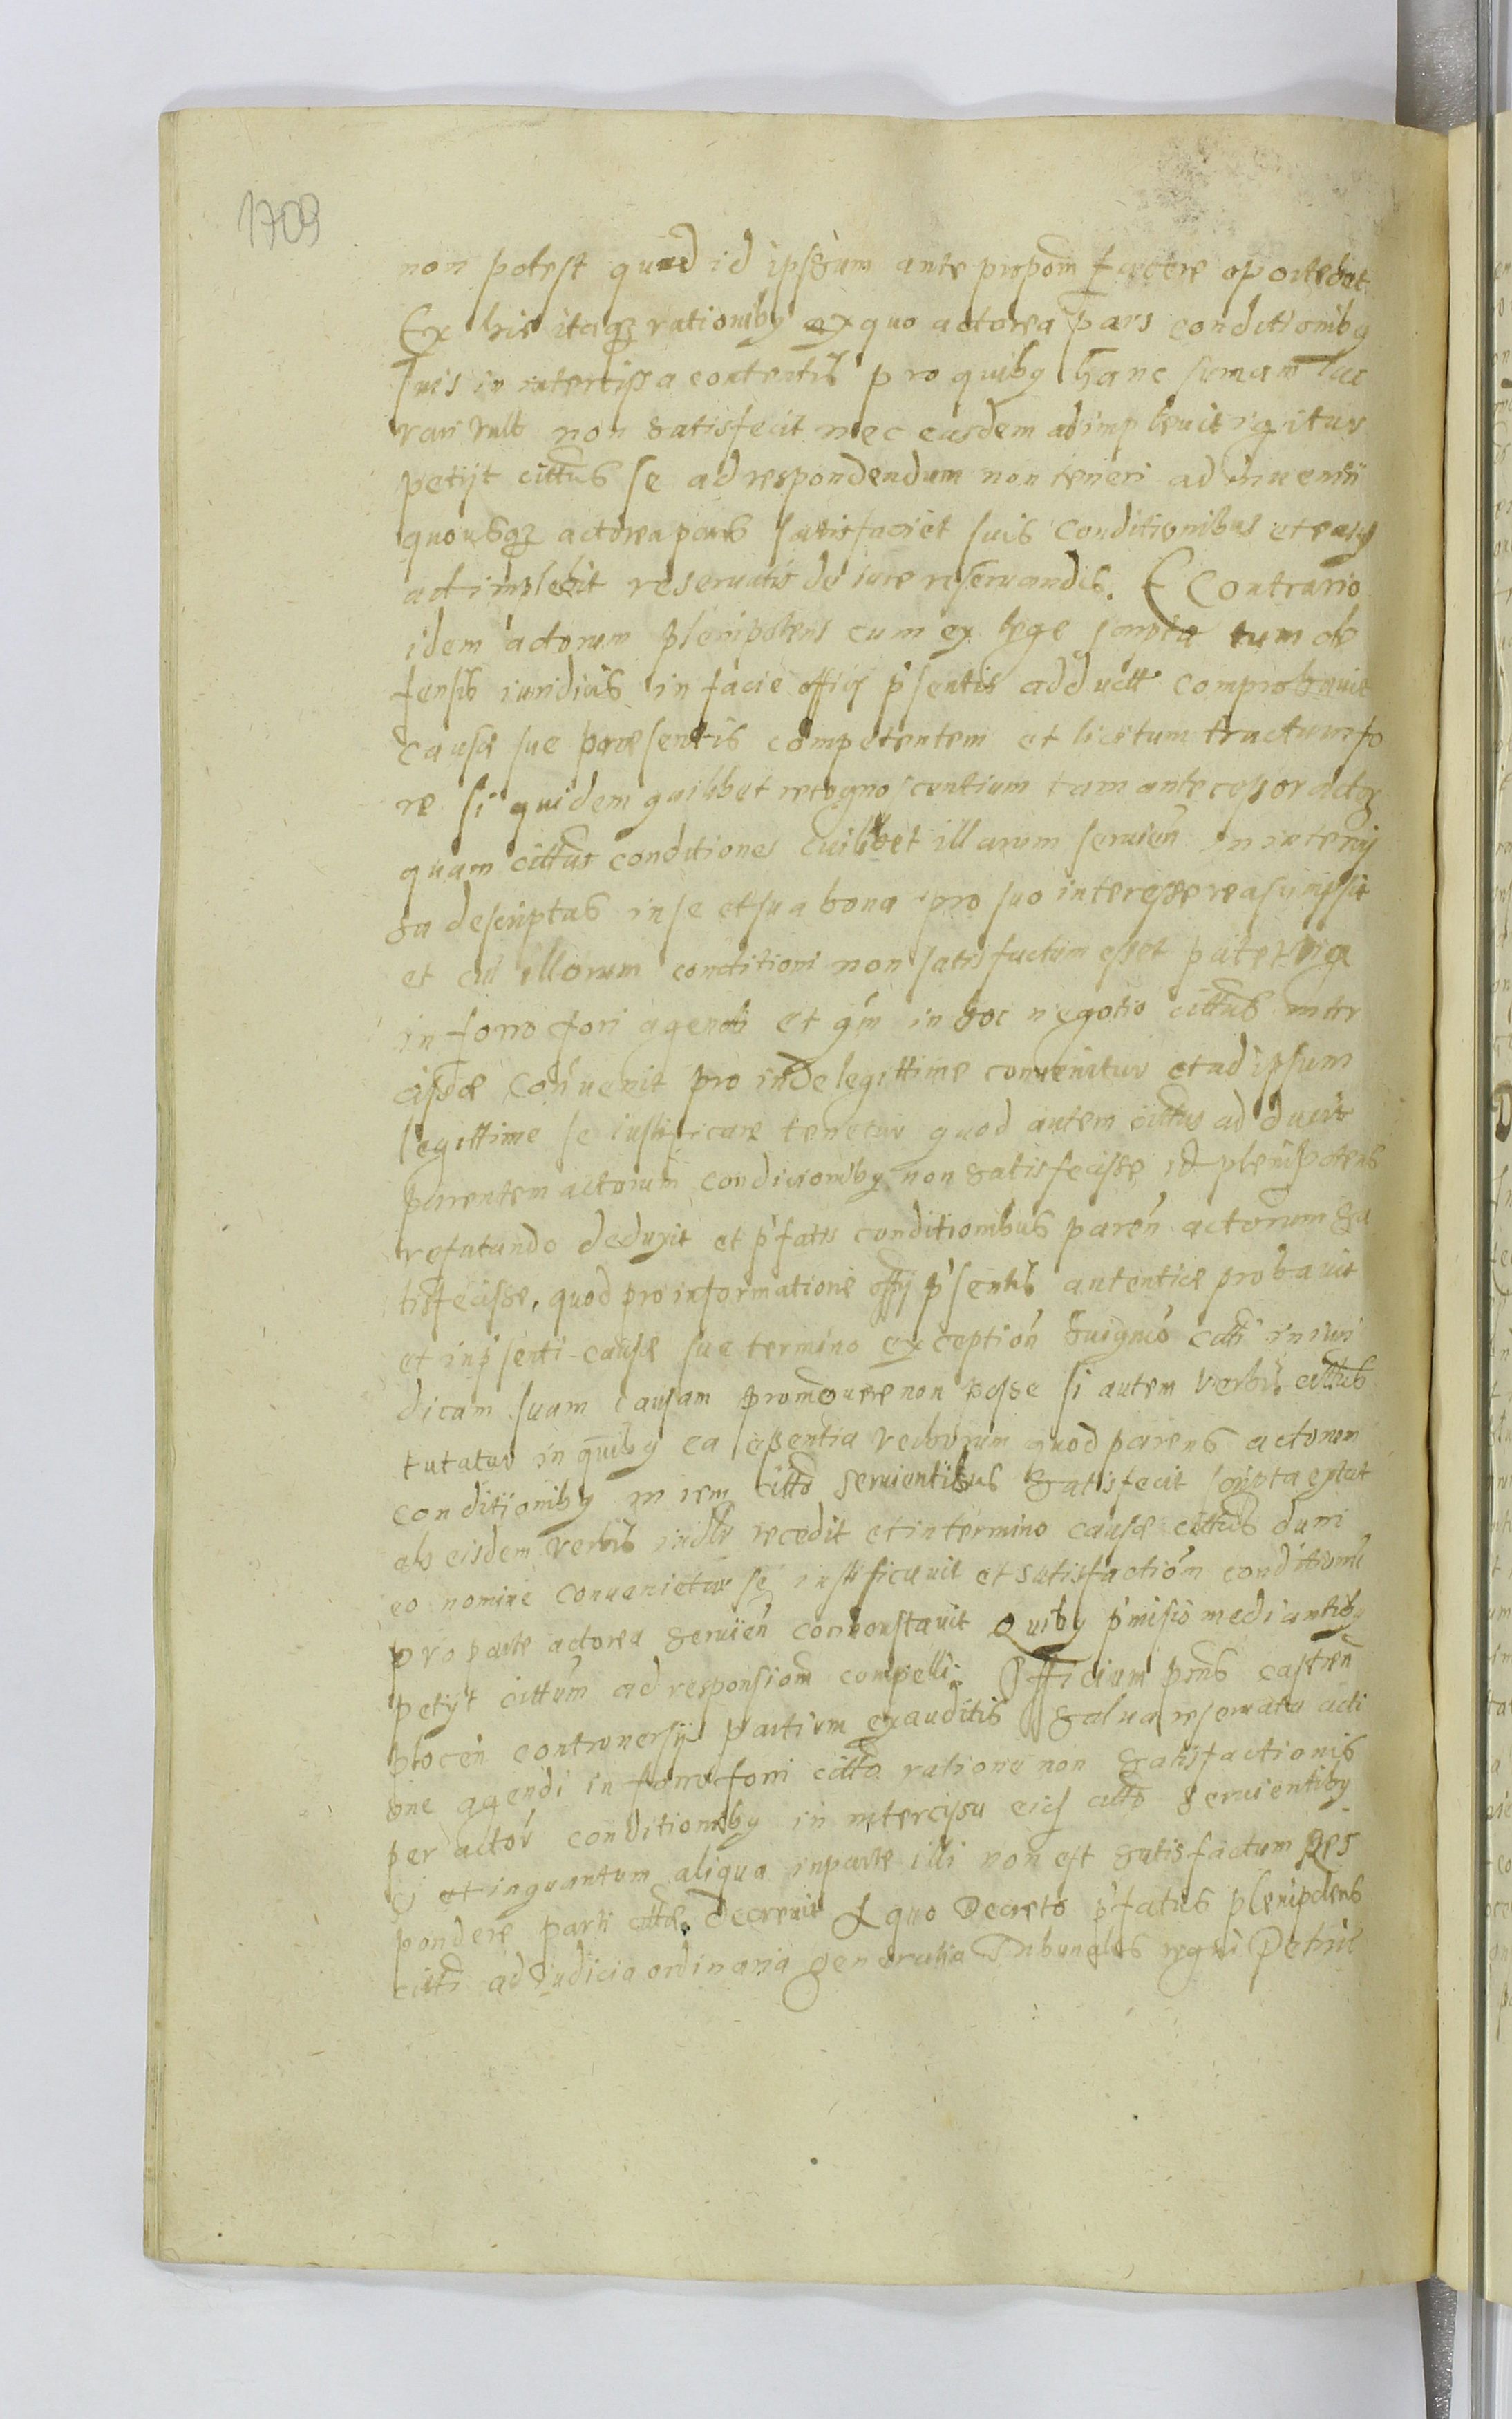 1709
non potest quod id ipsum ante propom facere oportebat.
Ex his itaq3 rationiby ex quo actorea pars conditioniby
suis in intercissa contentis pro quiby hanc sumam luc
rari vult non satisfecit nec easdem adimplevit igitur
petijt cittus se ad respondendum non teneri ad
quousq3 actorea pars satisfaciet suis conditionibus et easq
adimplebit reservatis de iure reservandis. E Contrario
idem actorum plenipotens cum ex lege scripta tum de
fensis iuridicis in facie officij pʼsentis adductt comprobavit
causæ sue præsentis competentem et licitum tractum fo
re si quidem quilibet recognoscentium tam antecessor actor
quam cittus conditiones cuilibet illarum servien in intercij
sa descriptas in se et sua bona pro suo interesse reasumpsit
et cui illorum conditioni non satisfactum esset patet via
in forro fori agendi et qm in hoc negotio cittus inter
cissæ convenit pro inde legittime convenitur et ad ipsum
legittime se iustificare tenetur quod autem cittus adducit
parentem actorum condicioniby non satisfecisse id plenipotens
refutando deduxit et pʼfatis conditionibus paren actorum sa
tisfecisse, quod pro informatione offij pʼsentis autentice probavit
et in pʼsenti causæ sue termino exception huiqmo citti in iuri
dicam suam causam promovere non posse si autem verbis cittus
tutatur in quiby ea essentia verborum quod parens actorum
conditioniby in rem citto servientibus satisfecit scripta extat
ab eisdem verbis recedit et in termino causæ cittus dum
eo nomine convenietur se iustificavit et satisfaction
pro parte actorea servien Quiby pʼmisis mediantiby
petijt cittum ad responsiom compelli. Officium pns castren
plocen controversij partium exauditis salva reservata acti
one agendi in forro fori citto ratione non satisfactionis
per actor conditioniby in intercijsa eid citto servientiby
et inquantum aliqua in parte illi non est satisfactum res
pondere parti cittæ decrevit A quo Decreto pʼfatus plenipotens
citti ad iudicia ordinaria generalia Tribunales regni Petric